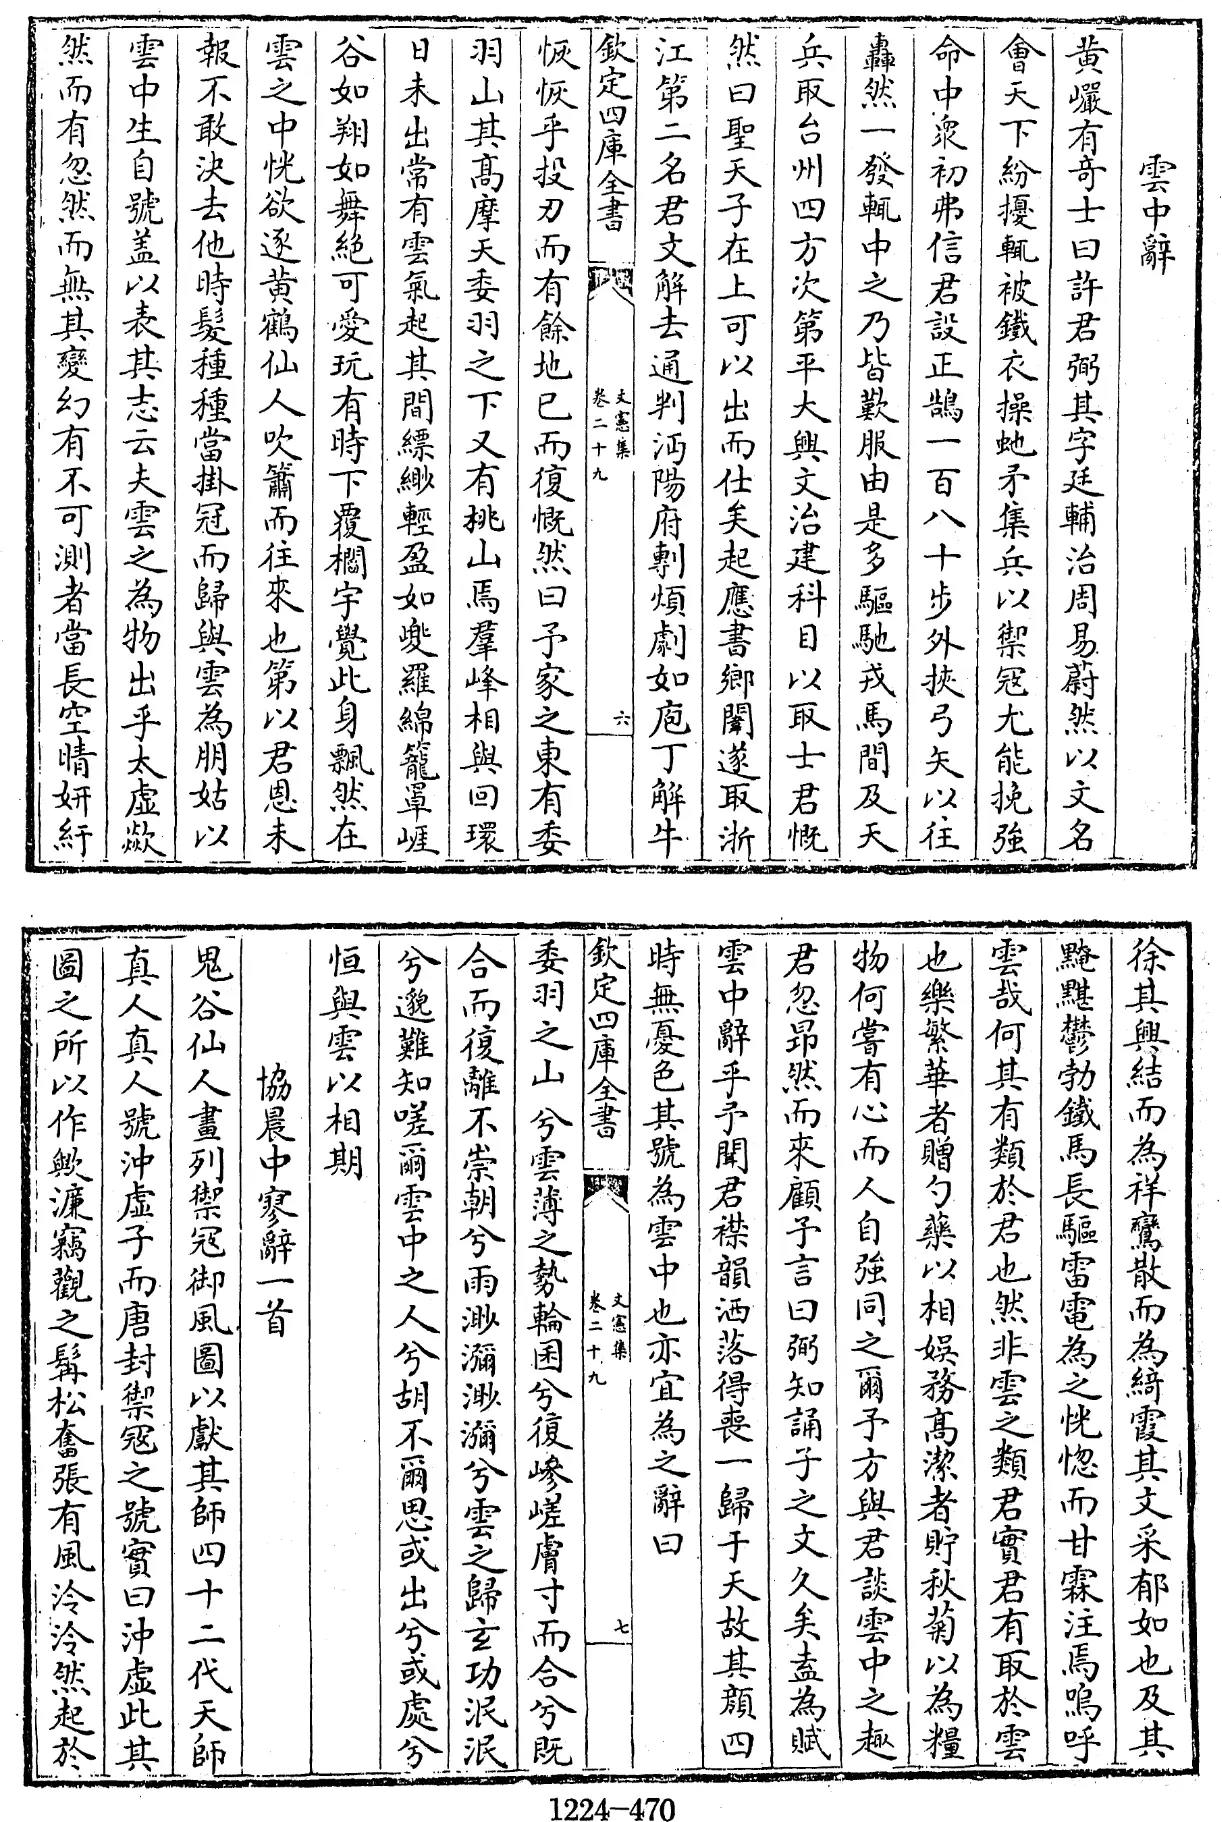 雲中辭
黄巖有竒士曰許君弼其字廷輔治周易蔚然以文名
會天下紛擾輒被鐵衣操虵矛集兵以禦冦尤能挽強
命中衆初弗信君設正鵠一百八十步外挾弓矢以往
轟然一發輒中之乃皆歎服由是多驅馳戎馬間及天
兵取台州四方次第平大興文治建科目以取士君慨
然曰聖天子在上可以出而仕矣起應書鄉闈遂取浙
江第二名君文解去通判沔陽府剸煩劇如庖丁解牛
欽定四庫全書
文憲集
卷二十九
六
恢恢乎投刃而有餘地已而復慨然曰予家之東有委
羽山其髙摩天委羽之下又有挑山焉羣峰相與回環
日未出常有雲氣起其間縹緲輕盈如兠羅綿籠罩崕
谷如翔如舞絶可愛玩有時下覆櫩宇覺此身飄然在
雲之中恍欲逐黄鶴仙人吹簫而往來也第以君恩未
報不敢決去他時髮種種當掛冠而歸與雲為朋姑以
雲中生自號盖以表其志云夫雲之為物出乎太虚歘
然而有忽然而無其變幻有不可測者當長空晴妍紆
徐其興結而為祥鸞散而為綺霞其文采郁如也及其
黤黮鬱勃鐵馬長驅雷電為之恍惚而甘霖注焉嗚呼
雲哉何其有類於君也然非雲之類君實君有取於雲
也樂繁華者贈勺藥以相娯務髙潔者貯秋菊以為糧
物何嘗有心而人自強同之爾予方與君談雲中之趣
君忽昻然而來顧予言曰弼知誦子之文久矣盍為賦
雲中辭乎予聞君襟韻洒落得喪一歸于天故其顔四
時無憂色其號為雲中也亦宜為之辭曰
欽定四庫全書
文憲集
卷二十九
七
委羽之山兮雲薄之勢輪囷兮復嵾嵯膚寸而合兮既
合而復離不崇朝兮雨渺瀰渺瀰兮雲之歸玄功泯泯
兮邈難知嗟爾雲中之人兮胡不爾思或出兮或處兮
恒與雲以相期
協晨中寥辭一首
鬼谷仙人畫列禦冦御風圖以獻其師四十二代天師
真人真人號沖虚子而唐封禦冦之號實曰沖虚此其
圖之所以作歟濂竊觀之髯松奮張有風泠泠然起於
1224-470